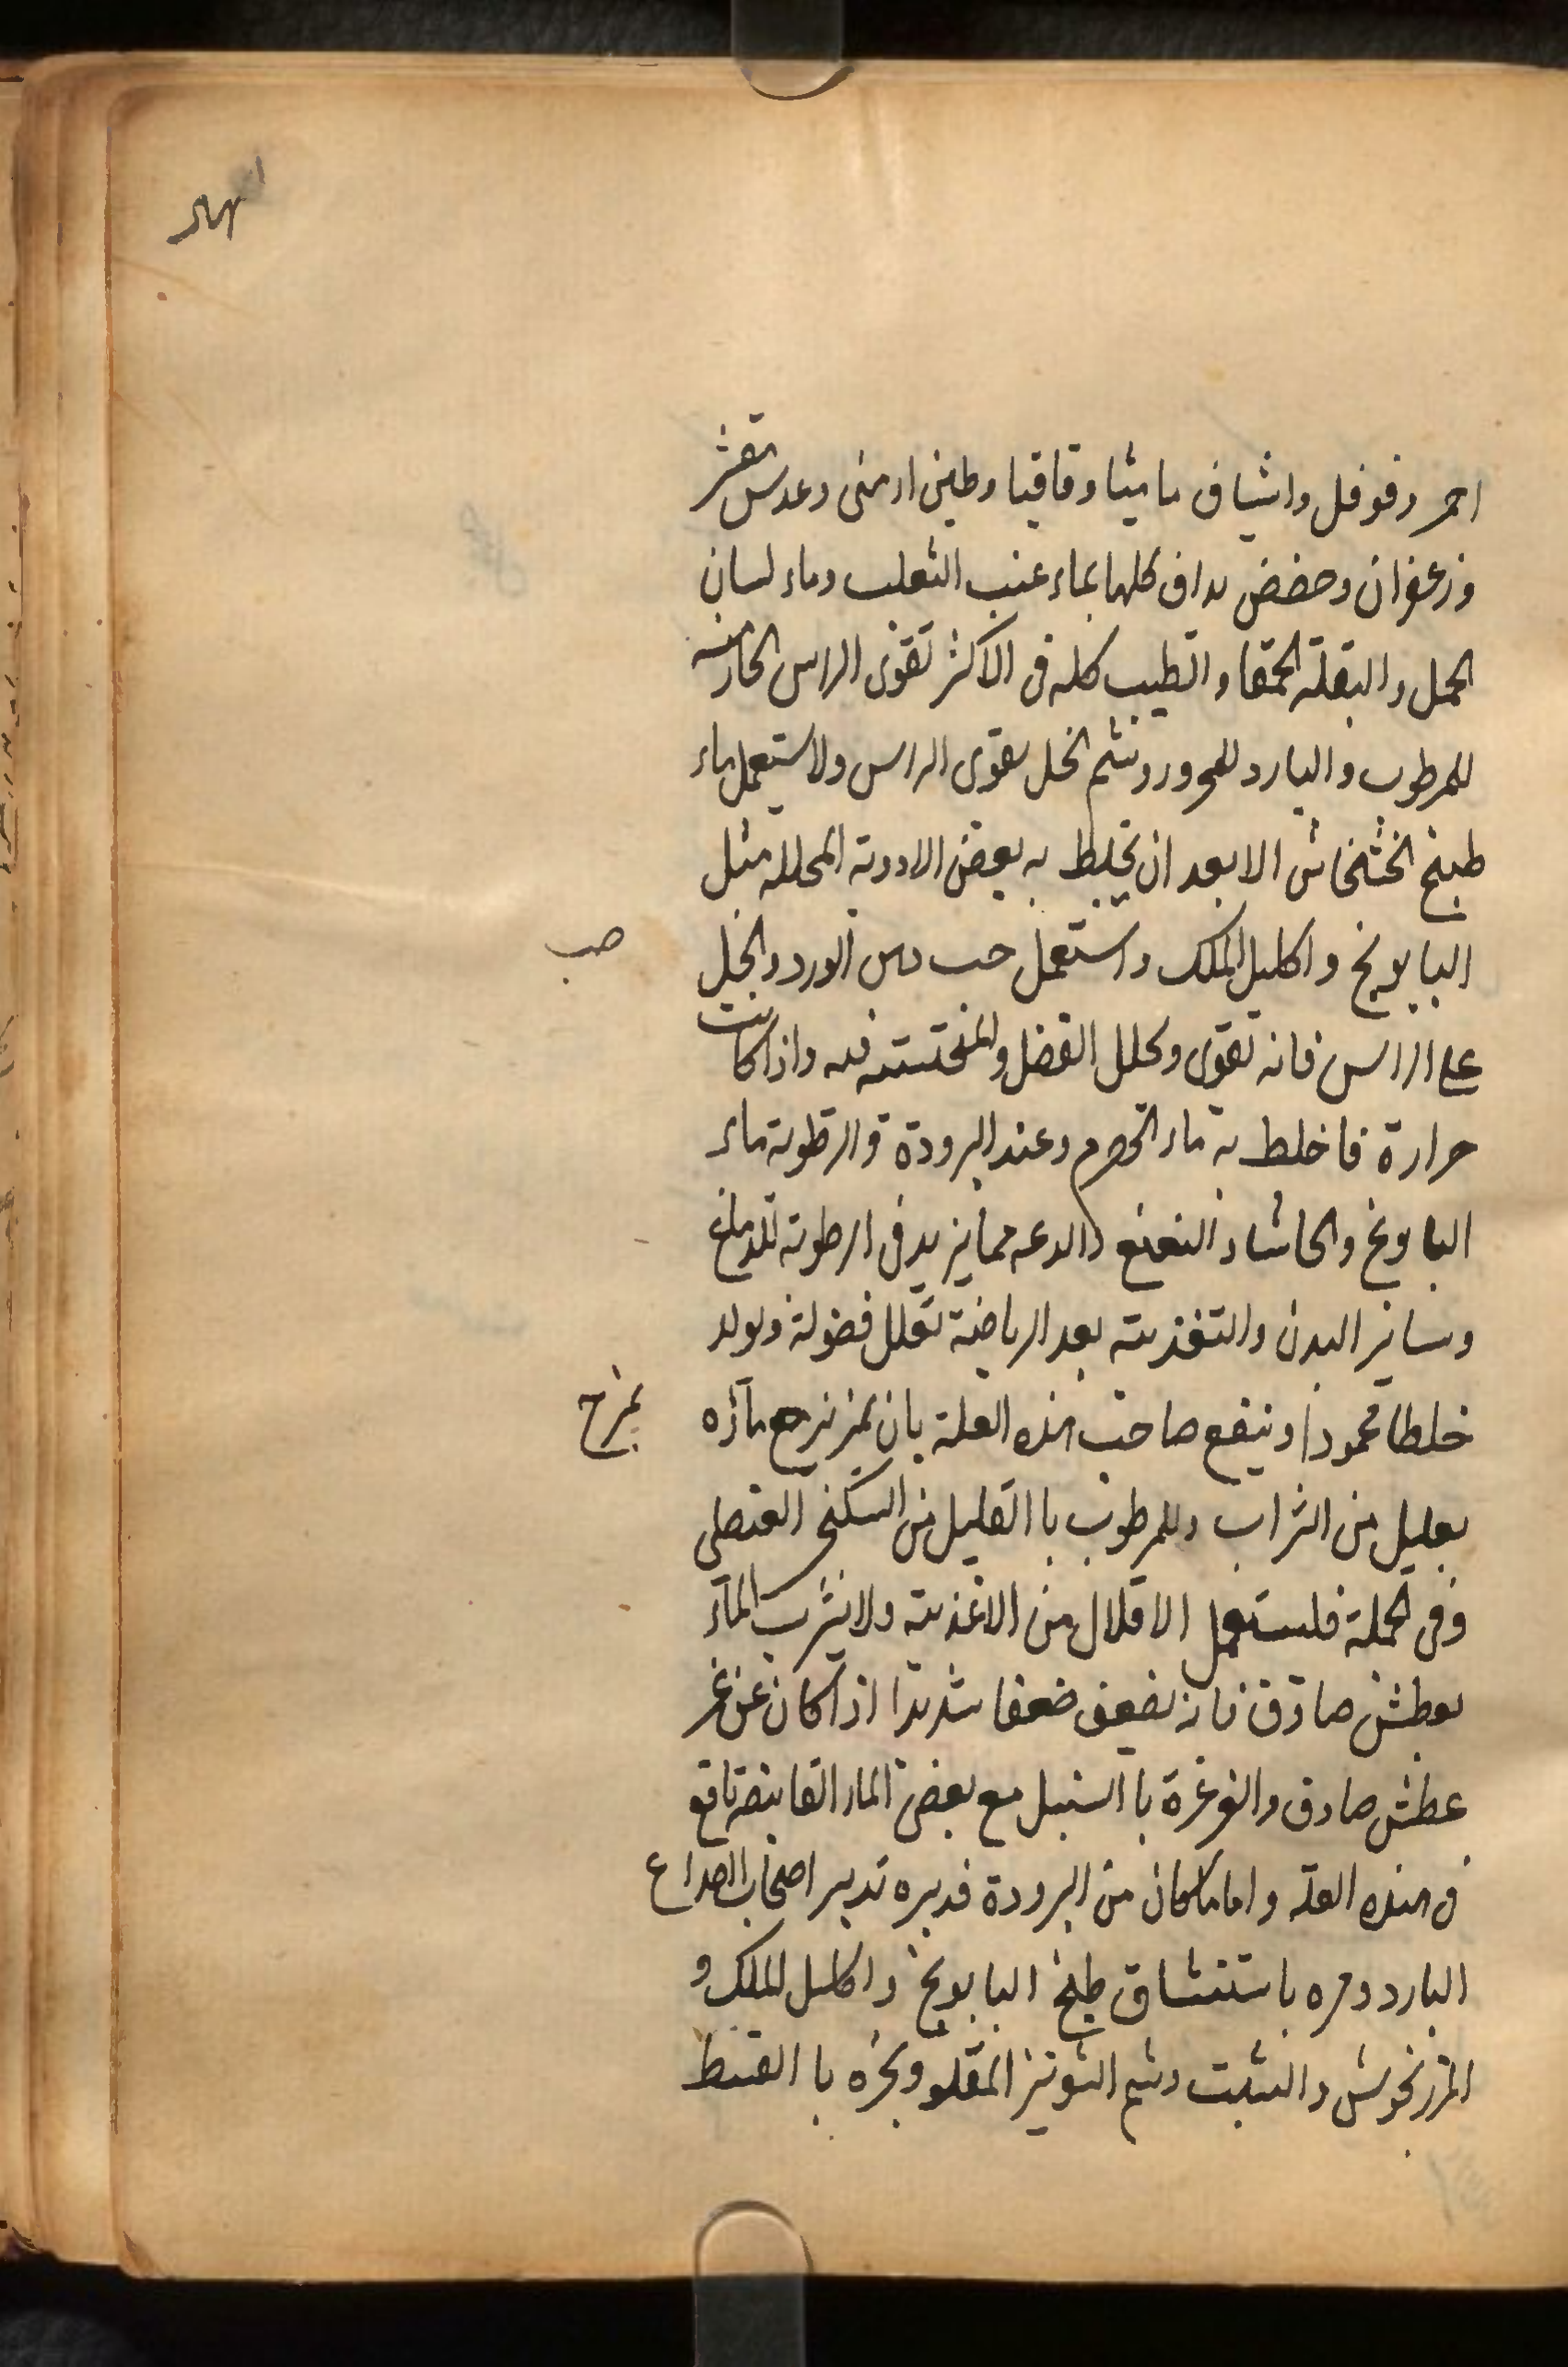 احمر وفوفل واشياف ماميثا وقاقيا وطين ارمنى وعدس مقشر
وزعفران وحضض يداف كلها بماء عنب الثعلب وماء لسان
الحمل والبقلة الحمقا والطيب كله فى الاكثر تقوى الراس الحار منه
للمرطوب والبارد للمحرور وشم الخل يقوى الراس ولا يستعمل ماء
طبيخ الخشخاش الا بعد ان يخلط به بعض الادوية المحللة مثل
البابونج واكليل الملك واستعمل حب دهن الورد والخل
صب
على الراس فانه تقوى ويحلل الفضل والمنحتسة فيه واذا كانت
حرارة فاخلط به ماء الحصرم وعند البرودة والرطوبة ماء
البابونج والحاشا والنعنع والدعه مما يزيد فى الرطوبة للدماغ
وسائر البدن والتغذية بعد الرياضة تقلل فضولة ويولد
خلطا محمودا وينفع صاحب هذه العلة بان يمزج ماؤه
يمزج
بقليل من الشراب وللمرطوب باالقليل من السكنجى العنصلى
وفى الجملة فليستعمل الاقلال من الاغذية ولا يشرب المآء
بعطش صادق فانه يضعف ضعفا شديدا اذا كان عن غير
عطش صادق والغرغرة باالسنبل مع بعض المياه القابضة نافع
فى هذه العلة واما ما كان من البرودة فدبره تدبير اصحاب الصداع
البارد ومره باستنشاق طبيخ البابونج واكليل الملك و
المرزنجوش والشبت وشم الشونيز المقلو وبخره باالقسط